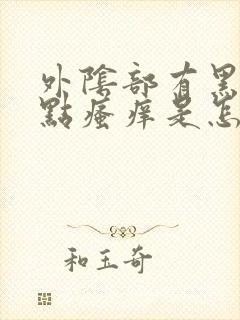 外陰部有黑
點瘙痒是怎
和玉奇